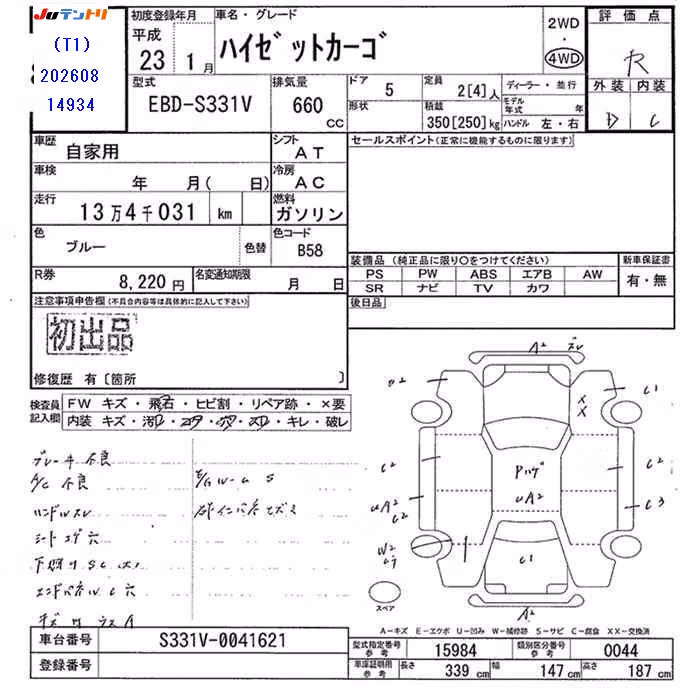 JUテントリ
(T1)
202608
14934
初度登録年月
平成
23 1月
車名・グレード
ハイゼットカーゴ
2WD
・
4WD
評価点
R
外装 内装
D C
型式
EBD-S331V
排気量
660
cc
ドア
5
形状
定員
2[4]人
積載
350[250]kg
ディーラー・並行
モデル年式 年
ハンドル 左・右
車歴
自家用
シフト
AT
車検
年 月( 日)
冷房
AC
走行
13万4千031 km
燃料
ガソリン
色
ブルー
色替
色コード
B58
R券
8,220円
名変通知期限
月 日
セールスポイント(正常に機能するものに限ります)
装備品(純正品に限り○をつけてください)
PS PW ABS エアB AW
SR ナビ TV カワ
新車保証書
有・無
後日品
注意事項申告欄(不具合内容等は具体的に記入して下さい)
初出品
修復歴 有〔箇所 〕
検査員記入欄
FW キズ・飛石・ヒビ割・リペア跡・×要
内装 キズ・汚れ・コゲ・穴・スレ・キレ・破レ
ブレーキ不良
A/C 不良
ハンドルスレ
シートコゲ穴
下廻りSC(大)
エンドパネルC穴
A2
C1
C2
C2
C3
UA2
C2
W2
UA2
C1
A2
スペア
A－キズ E－エクボ U－凹み W－補修跡 S－サビ C－腐食 XX－交換済
車台番号
S331V-0041621
登録番号
型式指定番号 参考
15984
類別区分番号 参考
0044
車庫証明用 参考
長さ 339cm
幅 147cm
高さ 187cm